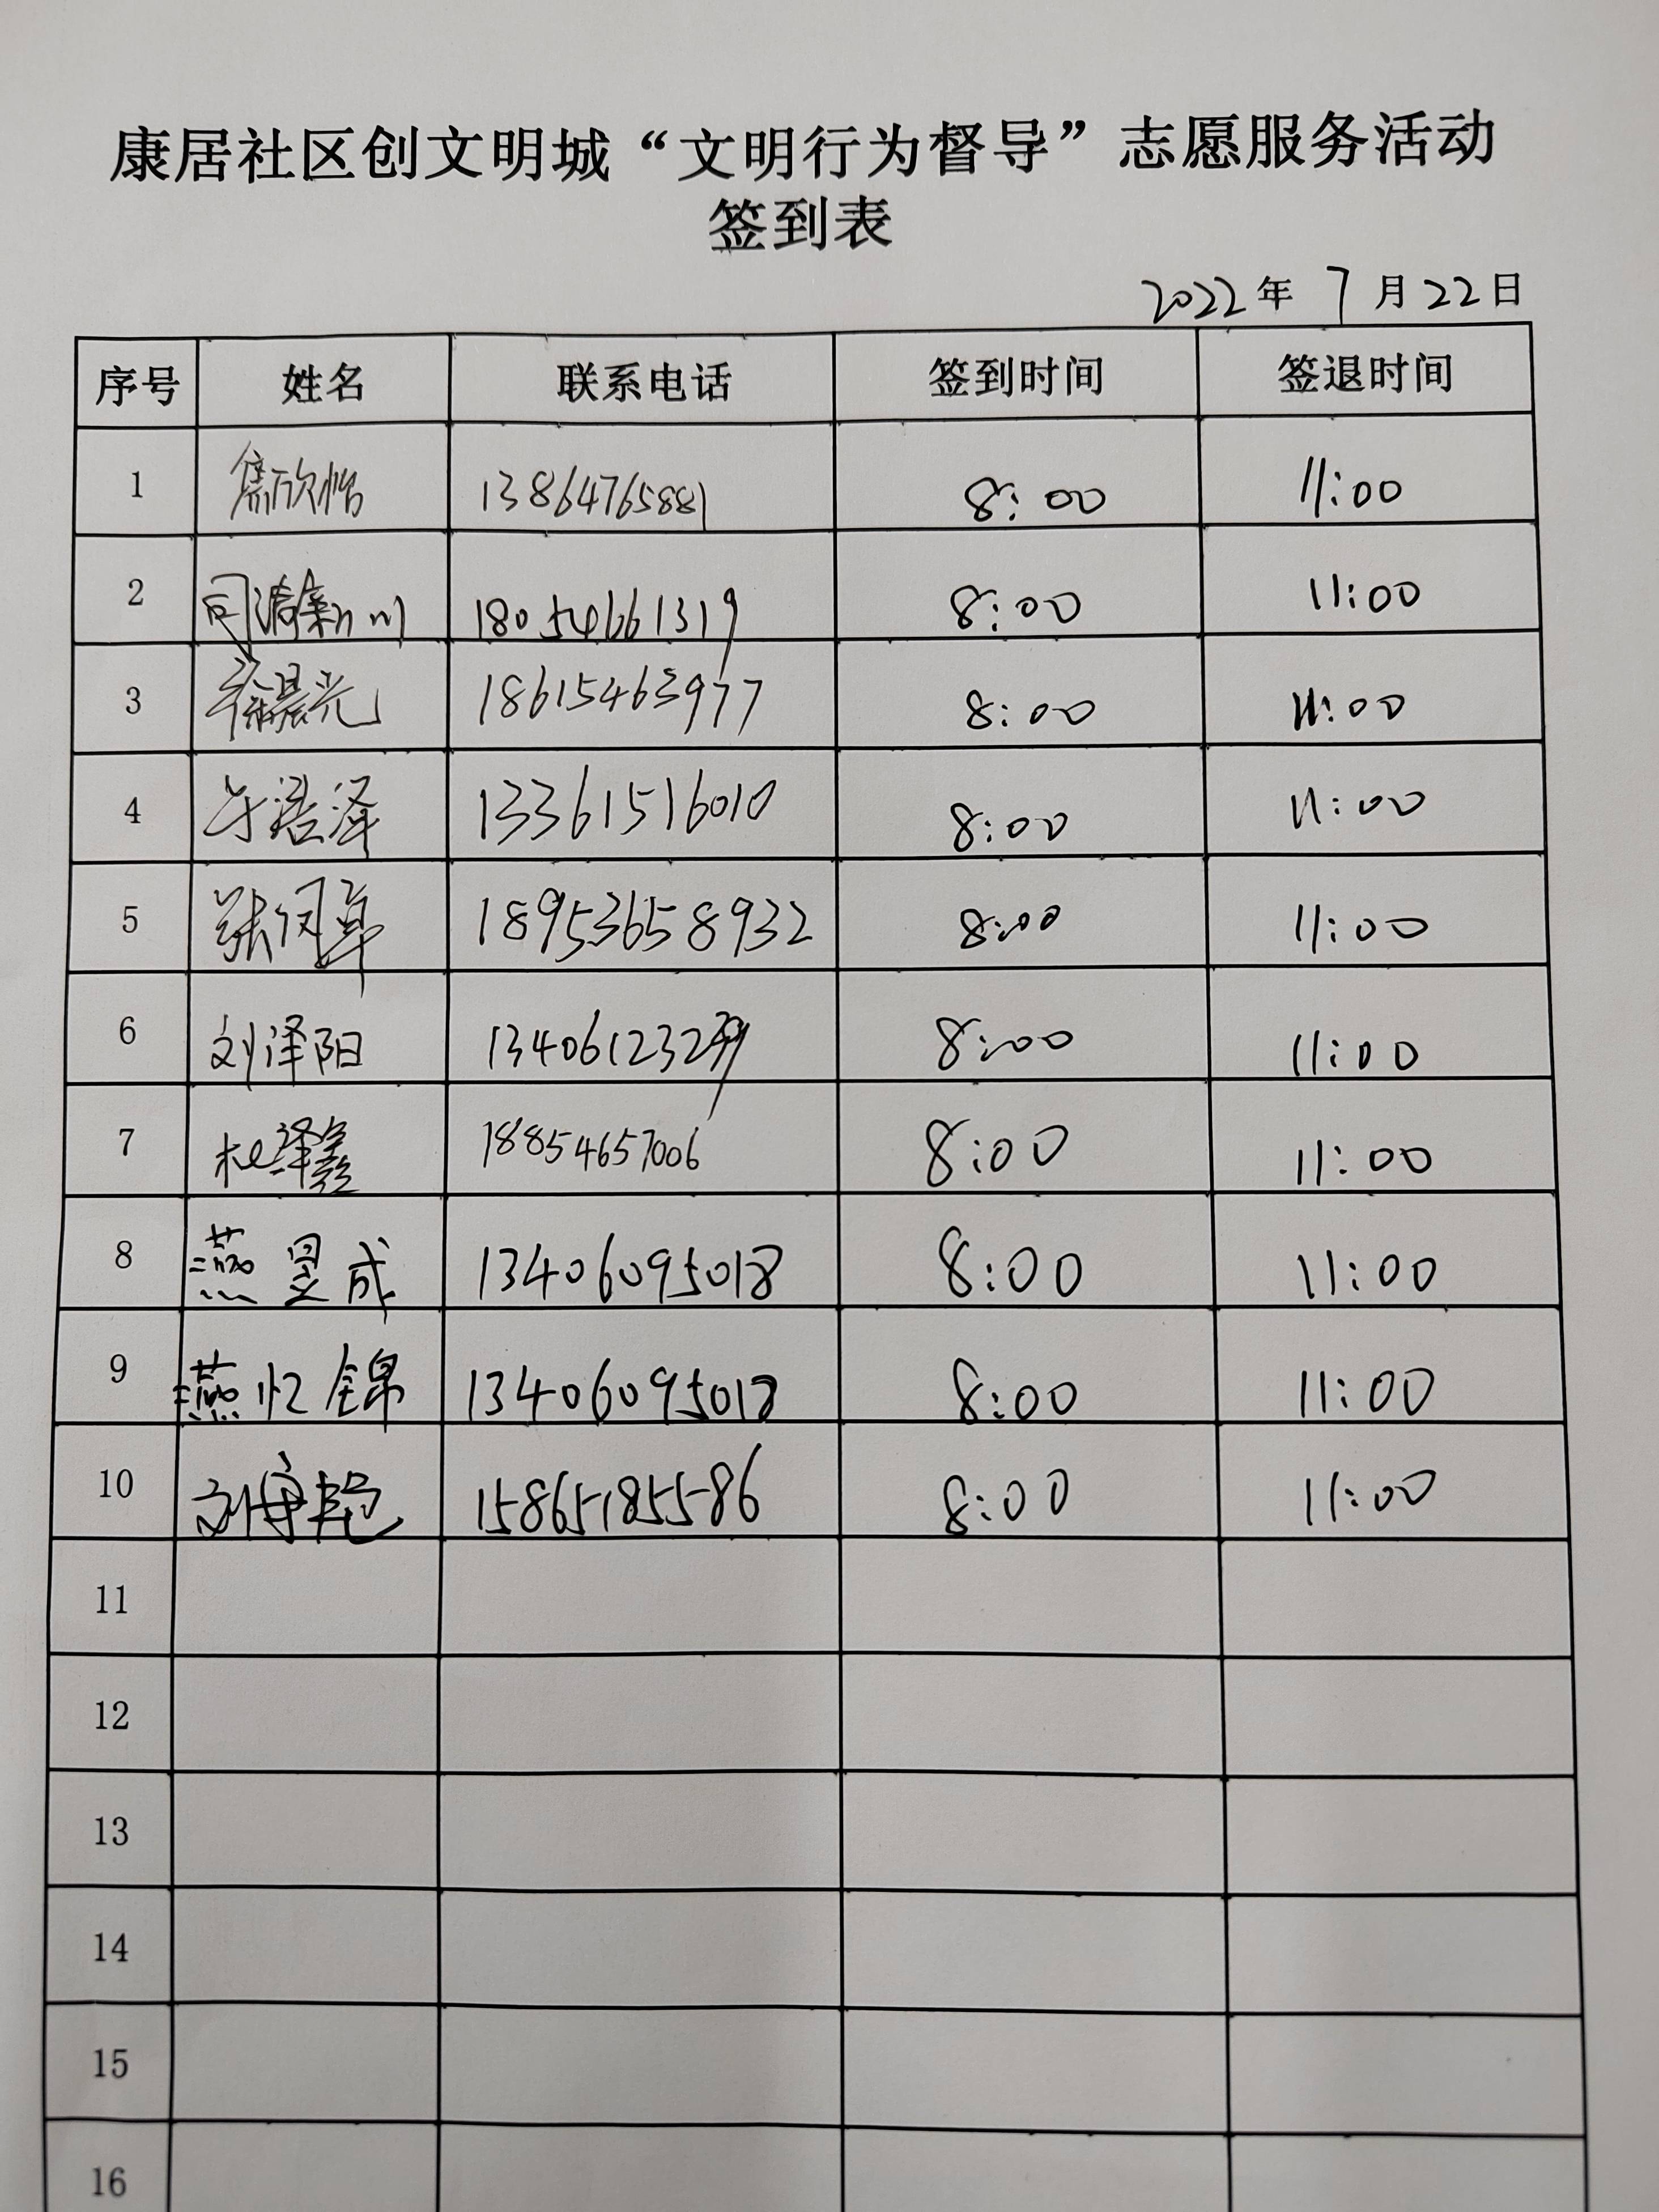 康居社区创文明城“文明行为督导”志愿服务活动
签到表
2022年 7月22日
序号 姓名 联系电话 签到时间 签退时间
1 焦欣怡 13864765881 8:00 11:00
2 18054661319 8:00 11:00
3 晨光 18615463977 8:00 11:00
4 浩泽 13361516010 8:00 11:00
5 张 18953658932 8:00 11:00
6 刘泽阳 8:00 11:00
7 杜泽鑫 18854657006 8:00 11:00
8 燕昱成 13406095018 8:00 11:00
9 燕忆锦 13406095018 8:00 11:00
10 刘博艳 15865185586 8:00 11:00
11
12
13
14
15
16